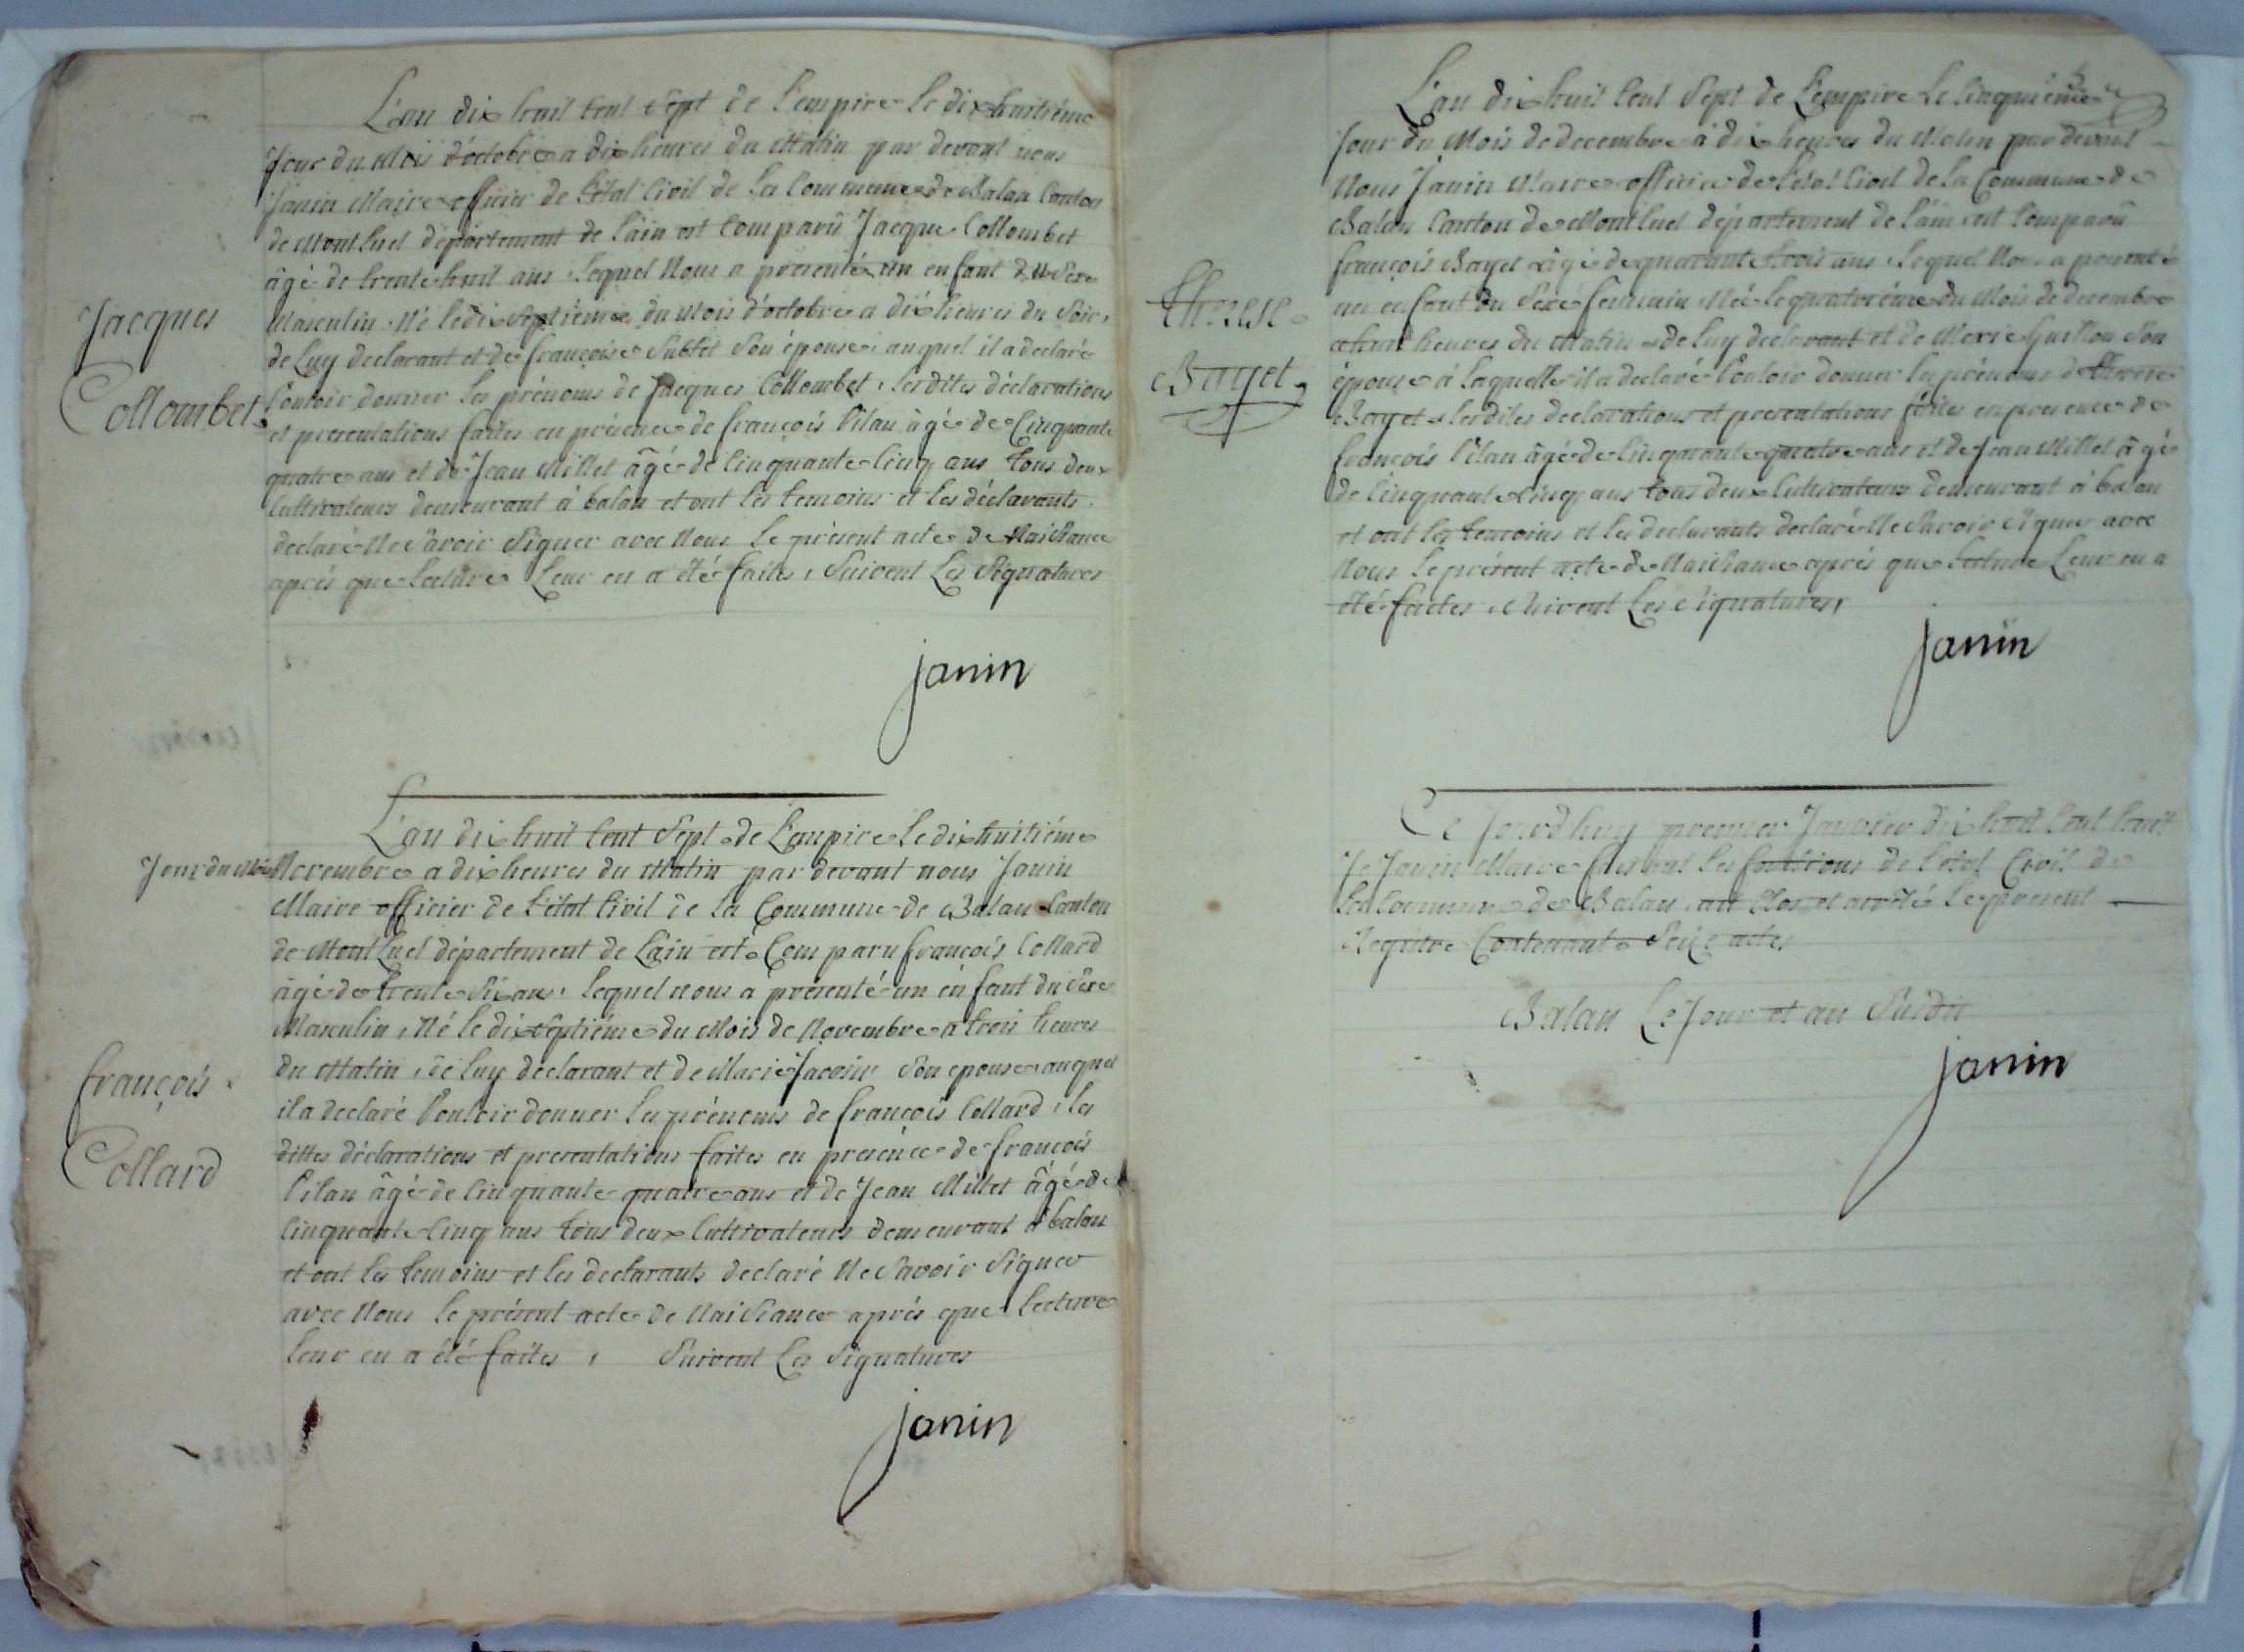 L'an dix huit cent sept de l'empire le dix huitième
Jour du Mois d'octobre a dix heures du Matin par devant nous
Janin Maire officier de l'état Civil de la Commune de Balan Canton
de Montluel département de l'ain est comparû Jacque Colloumbet
âgé de trente huit ans, lequel Nous a présenté un enfant du Sexe
Masculin Né le dix septième du Mois d'octobre a dix heures du Soir,
de Luy declarant et de françoise Sublet Son épouse, auquel il a declaré
Vouloir donner les prénoms de Jacques Colloumbet, les dites déclarations
et presentations faites en présence de françois Pilau âgé de Cinquante
quatre ans et de Jean Millet âgé de Cinquante Cinq ans tous deux
Cultivateurs demeurant à balan et ont les temoins et les déclarants
declaré Ne Savoir Signer avec Nous le présent acte de Naissance
après que Lecture Leur en a été faites, Suivent Les Signatures
Jacques
Collombet
janin
L'an dix huit cent Sept de L'empire le dix huitième
Jour du Mois Novembre a dix heures du Matin par devant nous Janin
Maire officier de l'état Civil de la Commune de Balan Canton
de Montluel département de L'ain est Comparu françois Collard
âgé de trente Six ans, lequel nous a présenté un enfant du Sexe
Masculin, Né le dix septième du Mois de Novembre a trois heures
du Matin, de luy déclarant et de Marie Son epouse auquel
il a declaré Vouloir donner les prénoms de françois Collard, les
dittes déclarations et presentations faites en presence de françois
Pilau âgé de Cinquante quatre ans et de Jean Millet âgé de
Cinquante Cinq ans tous deux Cultivateurs demeurant à balan
et ont les temoins et les declarants declaré Ne Savoir Signer
avec Nous le présent acte de Naissance après que Lecture
leur en a été faites, Suivent Les Signatures
françois
Collard
janin
L'an dix huit Cent Sept de L'empire Le Cinquième
Jour du Mois de decembre à dix heures du Matin par devant
Nous Janin Maire officier de l'état Civil de la Commune de
Balan Canton de Montluel département de l'ain est Comparû
françois Bayet âgé de quarante trois ans, lequel Nous a présenté
un enfant du Sexe feminin Née le quatorième du Mois de decembre
a huit heures du Matin de luy declarant et de Marie Guillon Son
épouse à Laquelle il a declaré Vouloir donner les prénoms de Therese
Bayet, lesdites declarations et presentations faites en presence de
françois Pilau âgé de Cinquante quatre ans et de Jean Millet âgé
de Cinquante Cinq ans tous deux Cultivateurs demeurant à balan
et ont les temoins et les declarants declaré Ne Savoir Signer avec
Nous le présent acte de Naissance après que Lecture Leur en a
été faites, Suivent Les Signatures,
Therese
Bayet
janin
Ce Jourdhuy premier Janvier dix huit Cent huit
Je Janin Maire faisant les fonctions de l'état Civil de
La Commune de Balan ait Clos et arrêté le présent
Registre Contenant Seize actes
Balan Le Jour et an Susdit
janin